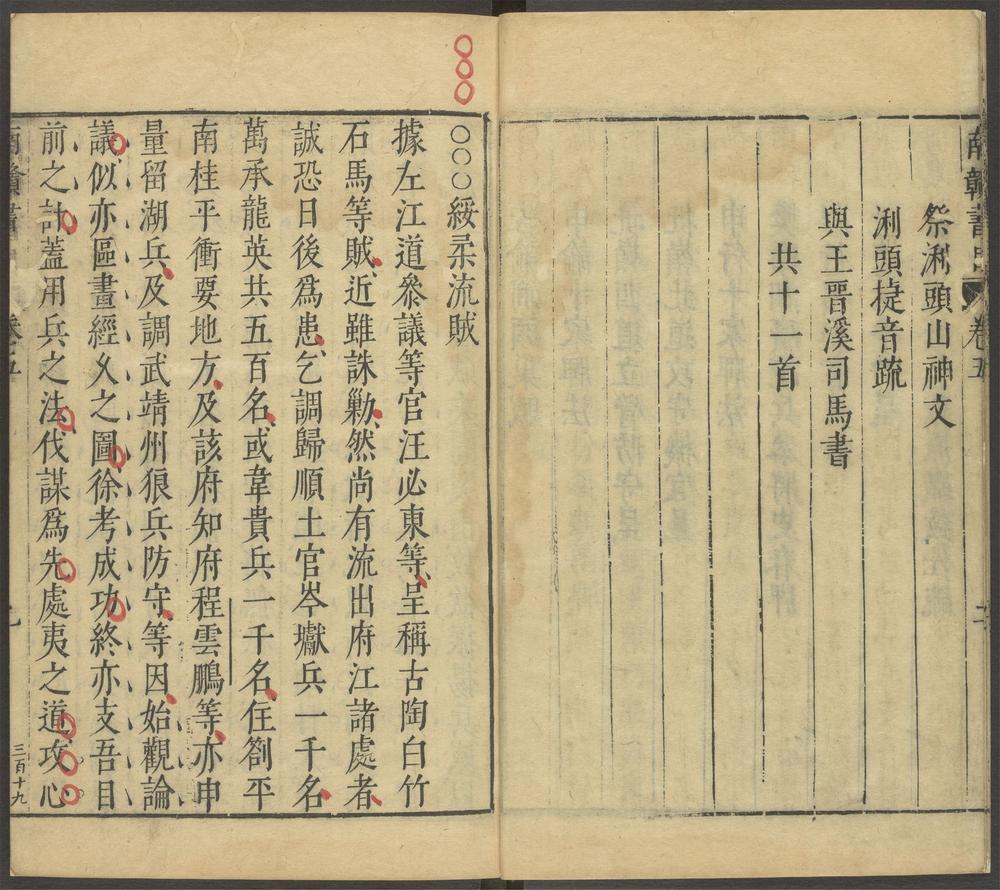 祭浰頭山神文
浰頭捷音疏
與王晉溪司馬書
共十一首
卷五
○○○綏柔流賊
據左江道叅議等官汪必東等呈稱古陶白竹
石馬等賊近雖誅勦然尚有流出府江諸處者
誠恐日後爲患乞調歸順土官岑瓛兵一千名
萬承龍英共五百名或韋貴兵一千名住劄平
南桂平衝要地方及該府知府程雲鵬等亦申
量留湖兵及調武靖州狼兵防守等因始觀論
議似亦區畫經久之圖徐考成功終亦支吾目
前之計蓋用兵之法伐謀爲先處夷之道攻心
三百十九